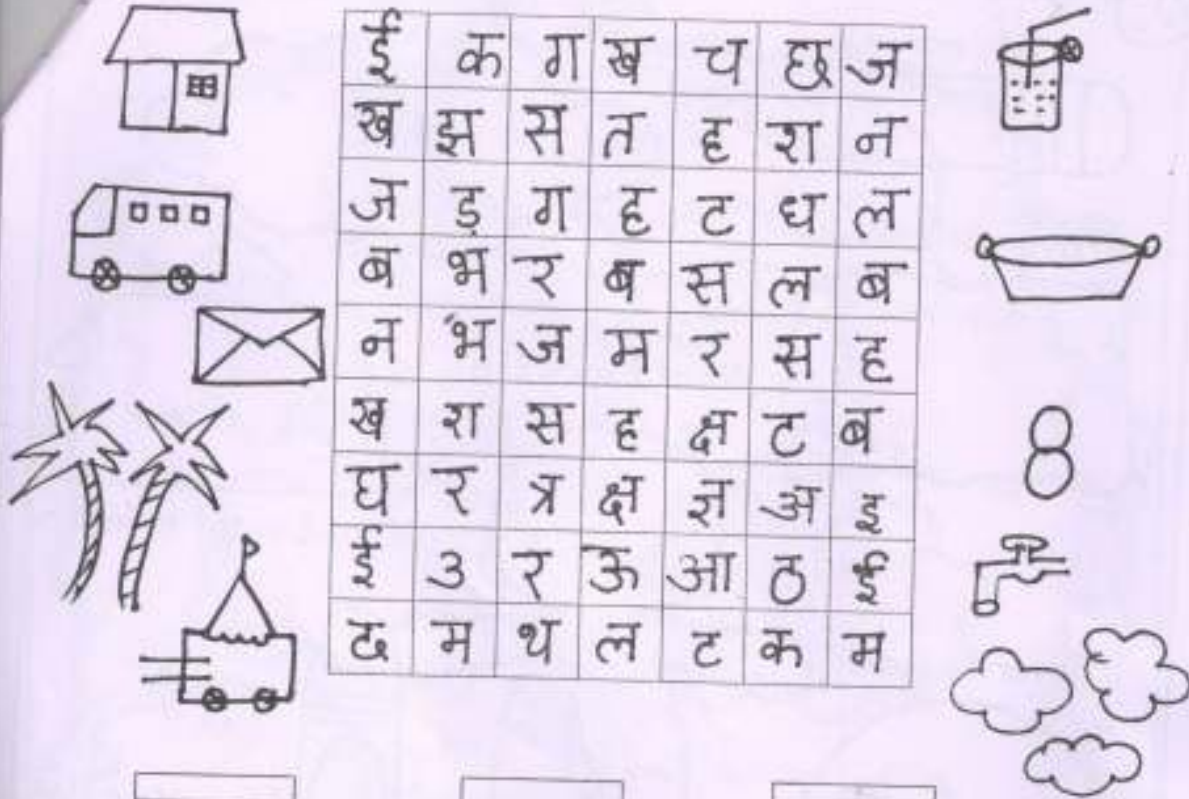 ई क ग ख च छ ज
ख झ स त ह श न
ज ड़ ग ह ट ध ल
ब भ र ब स ल ब
न भ ज म र स ह
ख श स ह क्ष ट ब
घ र त्र क्ष ज्ञ अ इ
ई उ र ऊ आ ठ ई
द म थ ल ट क म